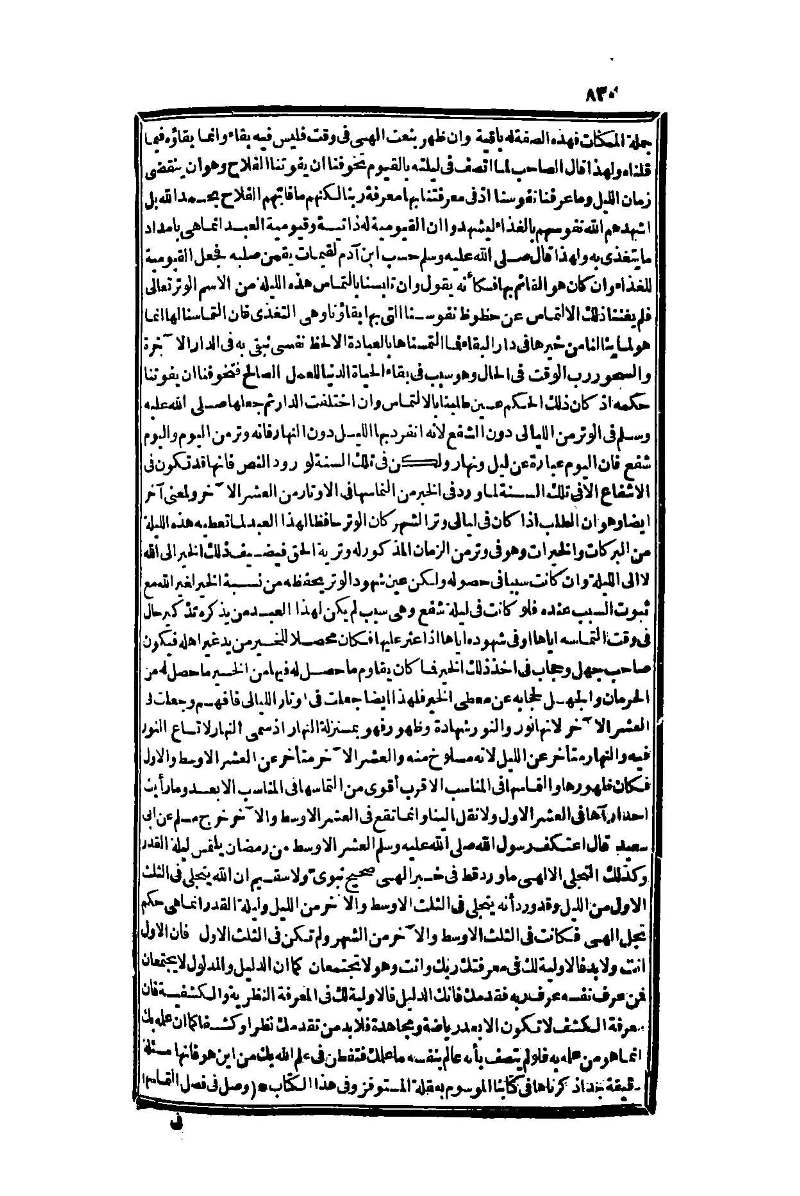 ٨٣٠
جملة الممكنات فهذه الصفة له باقية وان ظهر بنعت الهى فى وقت فليس فيه بقاء وانما بقاؤه فيما
قلناه ولهذا قال الصاحب لما اتصف فى ليلته بالقيوم تخوفنا ان يفوتنا الفلاح وهو ان ينقضى
زمان الليل وما عرفنا نفوسنا اذ فى معرفتنا بها معرفة ربنا لكنهم ما فاتهم الفلاح بحمد الله بل
اشهدهم الله نفوسهم بالغذاء ليشهدوا ان القيومية له ذاتية وقيومية العبد انما هى بامداد
ما يتغذى به ولهذا قال صلى الله عليه وسلم حسب ابن آدم لقيمات يقمن صلبه فجعل القيومية
للغذاء وان كان هو القائم بها فكأنه يقول وان تابسنا بالتماس هذه الليلة من الاسم الوتر تعالى
فلم يغننا ذلك الالتماس عن حظوظ نفوسنا التى بها بقاؤنا وهى التغذى فان التماسنا لها انما
هو لما ينالنا من خيرها فى دار البقاء فما التمسناها بالعبادة الا لحظ نفسى تبقى به فى الدار الآخرة
والسحور رب الوقت فى الحال وهو سبب فى بقاء الحياة الدنيا للعمل الصالح فتخوفنا ان يفوتنا
حكمه اذ كان ذلك الحكم عين طلبنا بالالتماس وان اختلفت الدار ثم جعلها صلى الله عليه
وسلم فى الوتر من الليالى دون الشفع لأنه انفرد بها الليل دون النهار فانه وتر من اليوم واليوم
شفع فان اليوم عبارة عن ليل ونهار ولكن فى تلك السنة لورود النص فانها قد تكون فى
الاشفاع الا فى تلك السنة لما ورد فى الخبر من التماسها فى الاوتار من العشر الآخر ولمعنى آخر
ايضا وهو ان الطلب اذا كان فى ليالى وتر الشهر كان الوتر حافظا لهذا العبد لما تعطيه هذه الليلة
من البركات والخيرات وهو فى وتر من الزمان المذكور له وترية الحق فيضيف ذلك الخير الى الله
لا الى الليلة وان كانت سببا فى حصوله ولكن عين شهود الوتر يحفظه من نسبة الخير لغير الله مع
ثبوت السبب عنده فلو كانت فى ليلة شفع وهى سبب لم يكن لهذا العبد من يذكره تذكير حال
فى وقت التماسه اياها او فى شهوده اياها اذا عثر عليها فكان محصلا للخير من يد غير اهله فيكون
صاحب جهل وحجاب فى اخذ ذلك الخير فما كان يقاوم ما حصل له فيها من الخير ما حصل له من
الحرمان والجهل لحجابه عن معطى الخير فلهذا ايضا جعلت فى اوتار الليالى فافهم وجعلت فى
العشر الآخر لانها نور والنور شهادة وظهور فهو بمنزلة النهار اذ سمى النهار لاتساع النور
فيه والنهار متأخر عن الليل لانه مسلوخ منه والعشر الآخر متأخر عن العشر الاوسط والاول
فكان ظهورها والتماسها فى المناسب الاقرب أقوى من التماسها فى المناسب الابعد وما رأيت
احدا رآها فى العشر الاول ولا نقل الينا وانما تقع فى العشر الاوسط والآخر خرج مسلم عن ابى
سعيد قال اعتكف رسول الله صلى الله عليه وسلم العشر الاوسط من رمضان يلتمس ليلة القدر
وكذلك التجلى الالهى ما ورد قط فى خبر الهى صحيح نبوى ولا سقيم ان الله يتجلى فى الثلث
الاول من الليل وقد ورد أنه يتجلى فى الثلث الاوسط والآخر من الليل وليلة القدر انما هى حكم
تجل الهى فكانت فى الثلث الاوسط والآخر من الشهر ولم تكن فى الثلث الاول فان الاول
انت ولا بد فالاولية لك فى معرفتك ربك وانت وهو لا تجتمعان كما ان الدليل والمدلول لا يجتمعان
فمن عرف نفسه عرف ربه فقدمك فانك الدليل فالاولية لك فى المعرفة النظرية والكشفية فان
معرفة الكشف لا تكون الا بعد رياضة ومجاهدة فلا بد من تقدمك نظرا وكشفا كما ان علمه بك
انما هو من علمه به فلو لم يتصف بأنه عالم بنفسه ما علمك فتفطن فى علم الله بك من اين هو فانها مسئلة
دقيقة جدا ذكرناها فى كتابنا الموسوم بعقلة المستوفز وفى هذا الكتاب * (وصل فى فصل التماسها)
ف